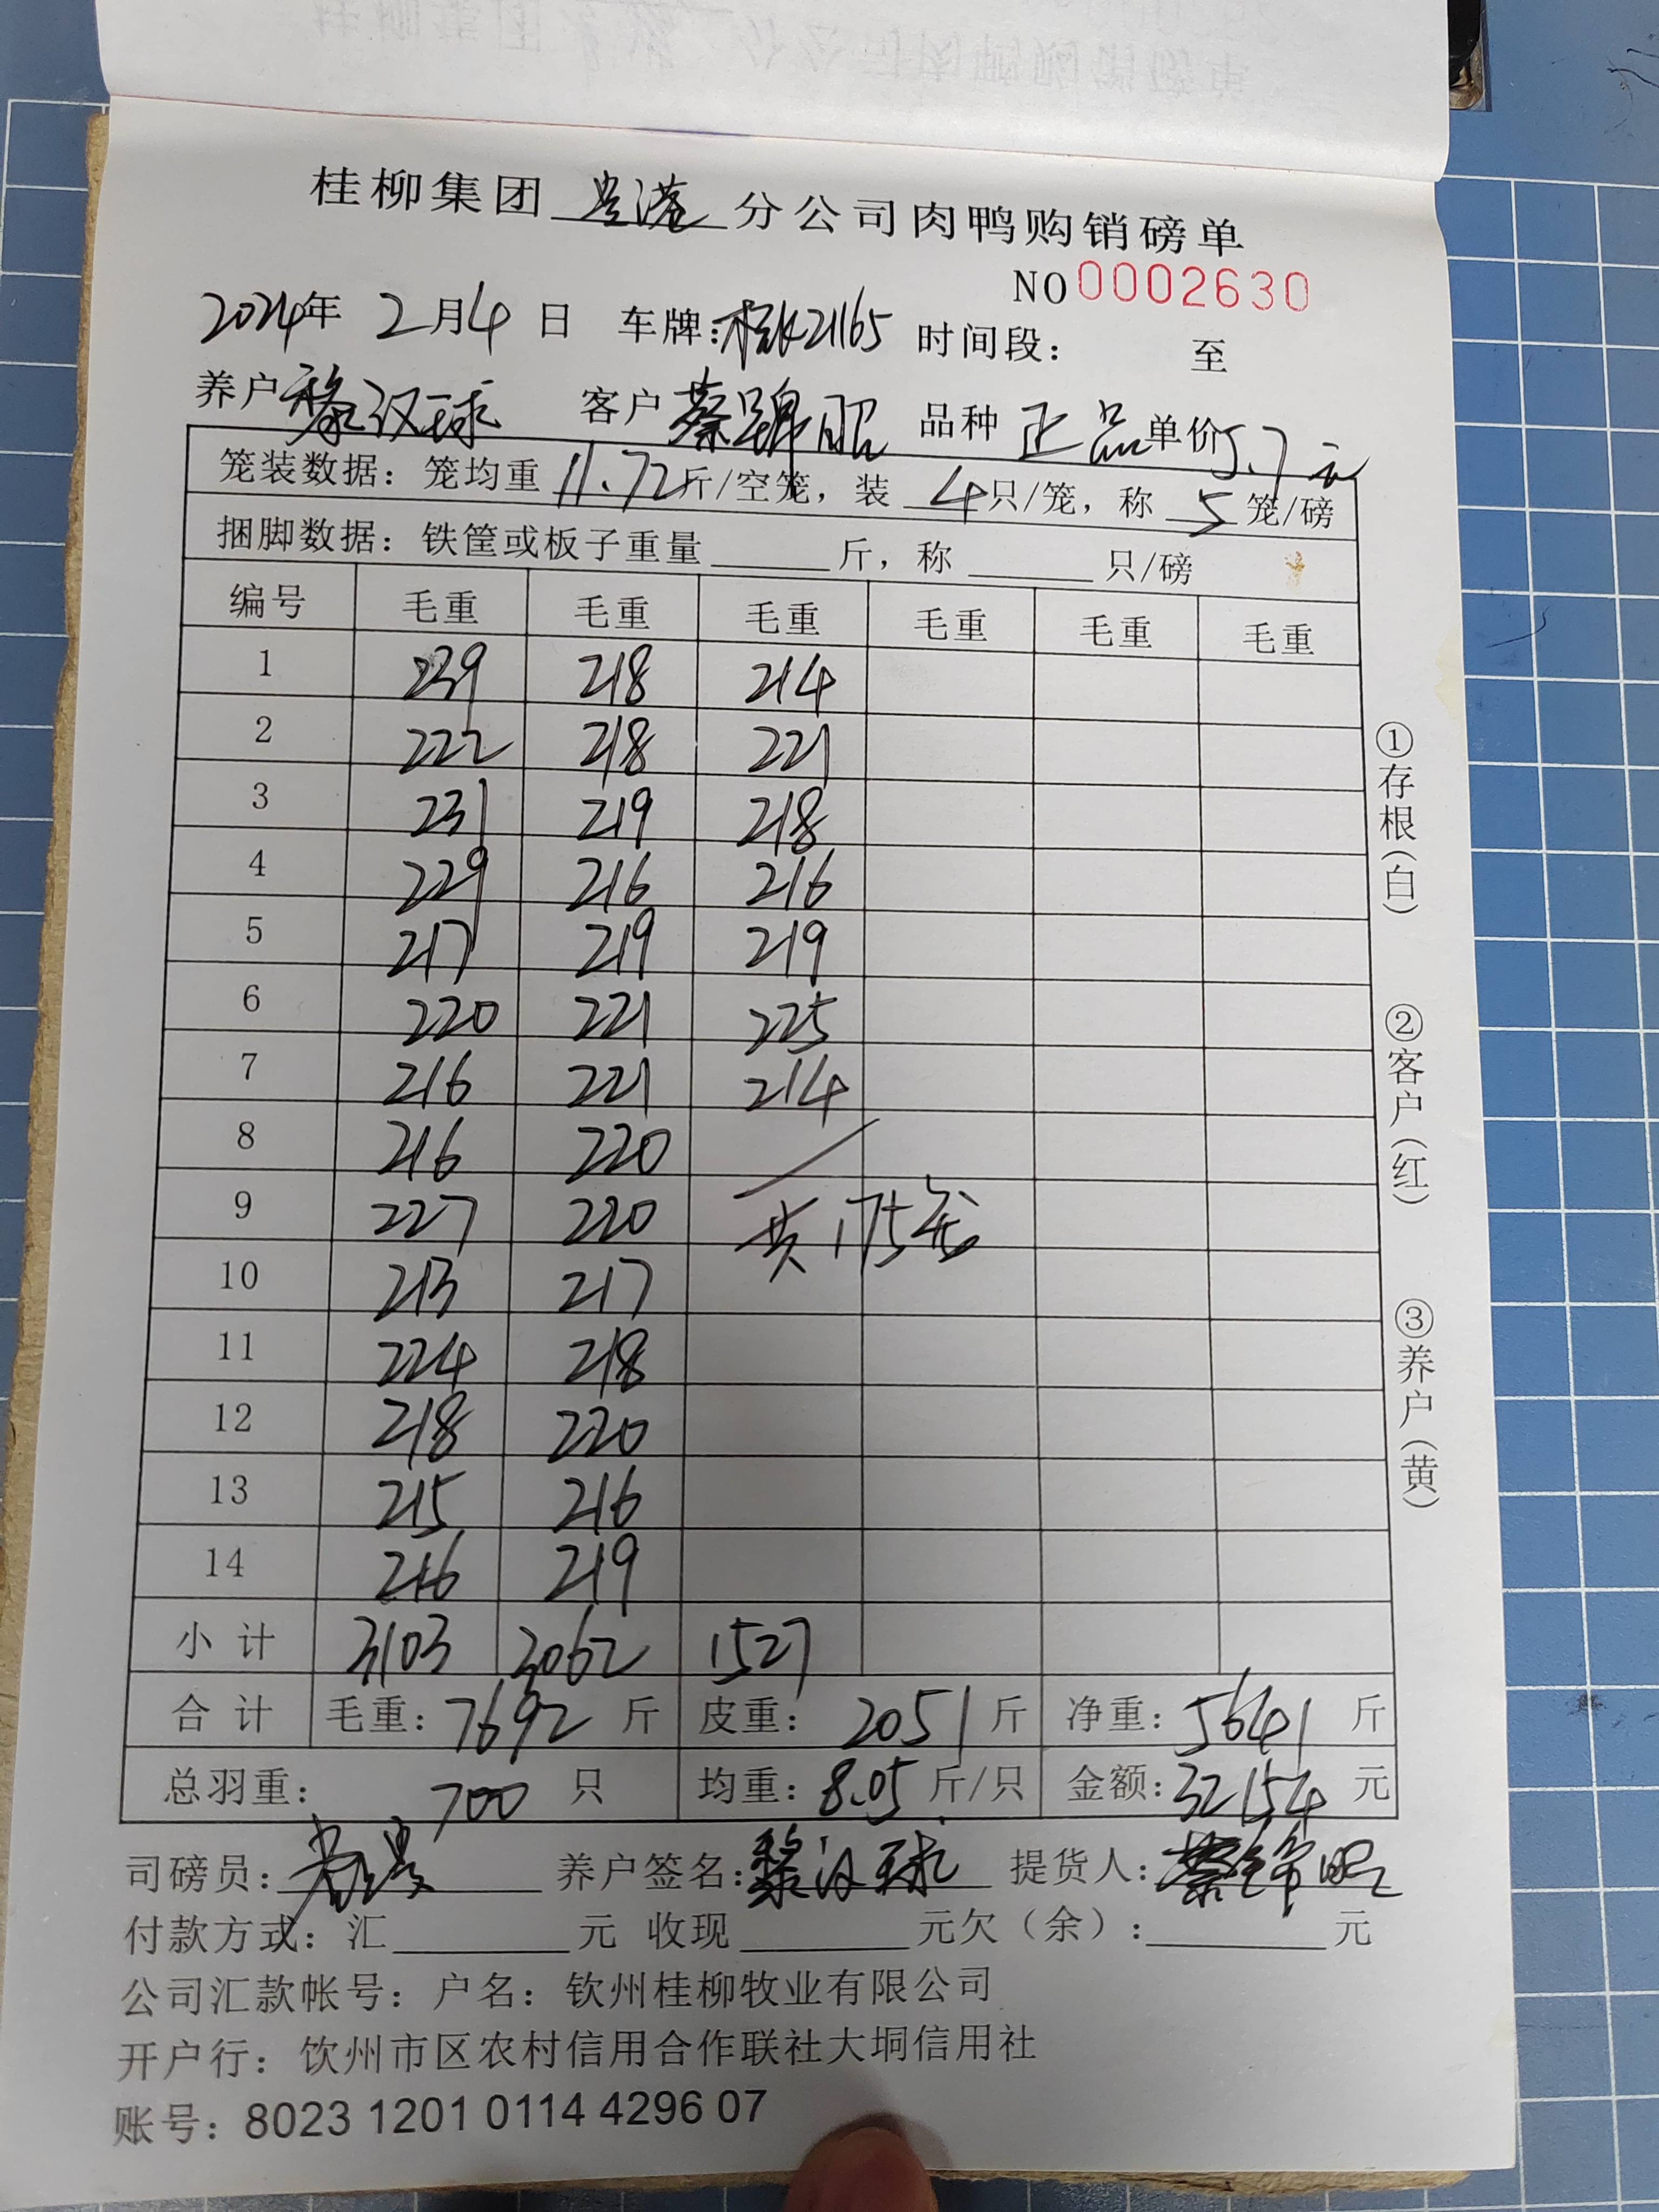 桂柳集团贵港分公司肉鸭购销磅单
NO 0002630
2024年 2月4日 车牌:桂K21165 时间段: 至
养户黎汉球 客户蔡锦昭 品种正品单价5.7元
笼装数据:笼均重11.72斤/空笼,装4只/笼,称5笼/磅
捆脚数据:铁筐或板子重量______斤,称______只/磅
编号 毛重 毛重 毛重 毛重 毛重 毛重
1 239 218 214
2 222 218 221
3 231 219 218
4 229 216 216
5 217 219 219
6 220 221 225
7 216 221 214
8 216 220
9 227 220 共175笼
10 213 217
11 224 218
12 218 220
13 215 216
14 216 219
小计 3103 3062 1527
合计 毛重:7692斤 皮重:2051斤 净重:5641斤
总羽重:700只 均重:8.05斤/只 金额:32154元
司磅员: 养户签名:黎汉球 提货人:蔡锦昭
付款方式:汇______元 收现______元欠(余):______元
公司汇款帐号:户名:钦州桂柳牧业有限公司
开户行:饮州市区农村信用合作联社大垌信用社
账号:8023 1201 0114 4296 07
①存根(白)
②客户(红)
③养户(黄)